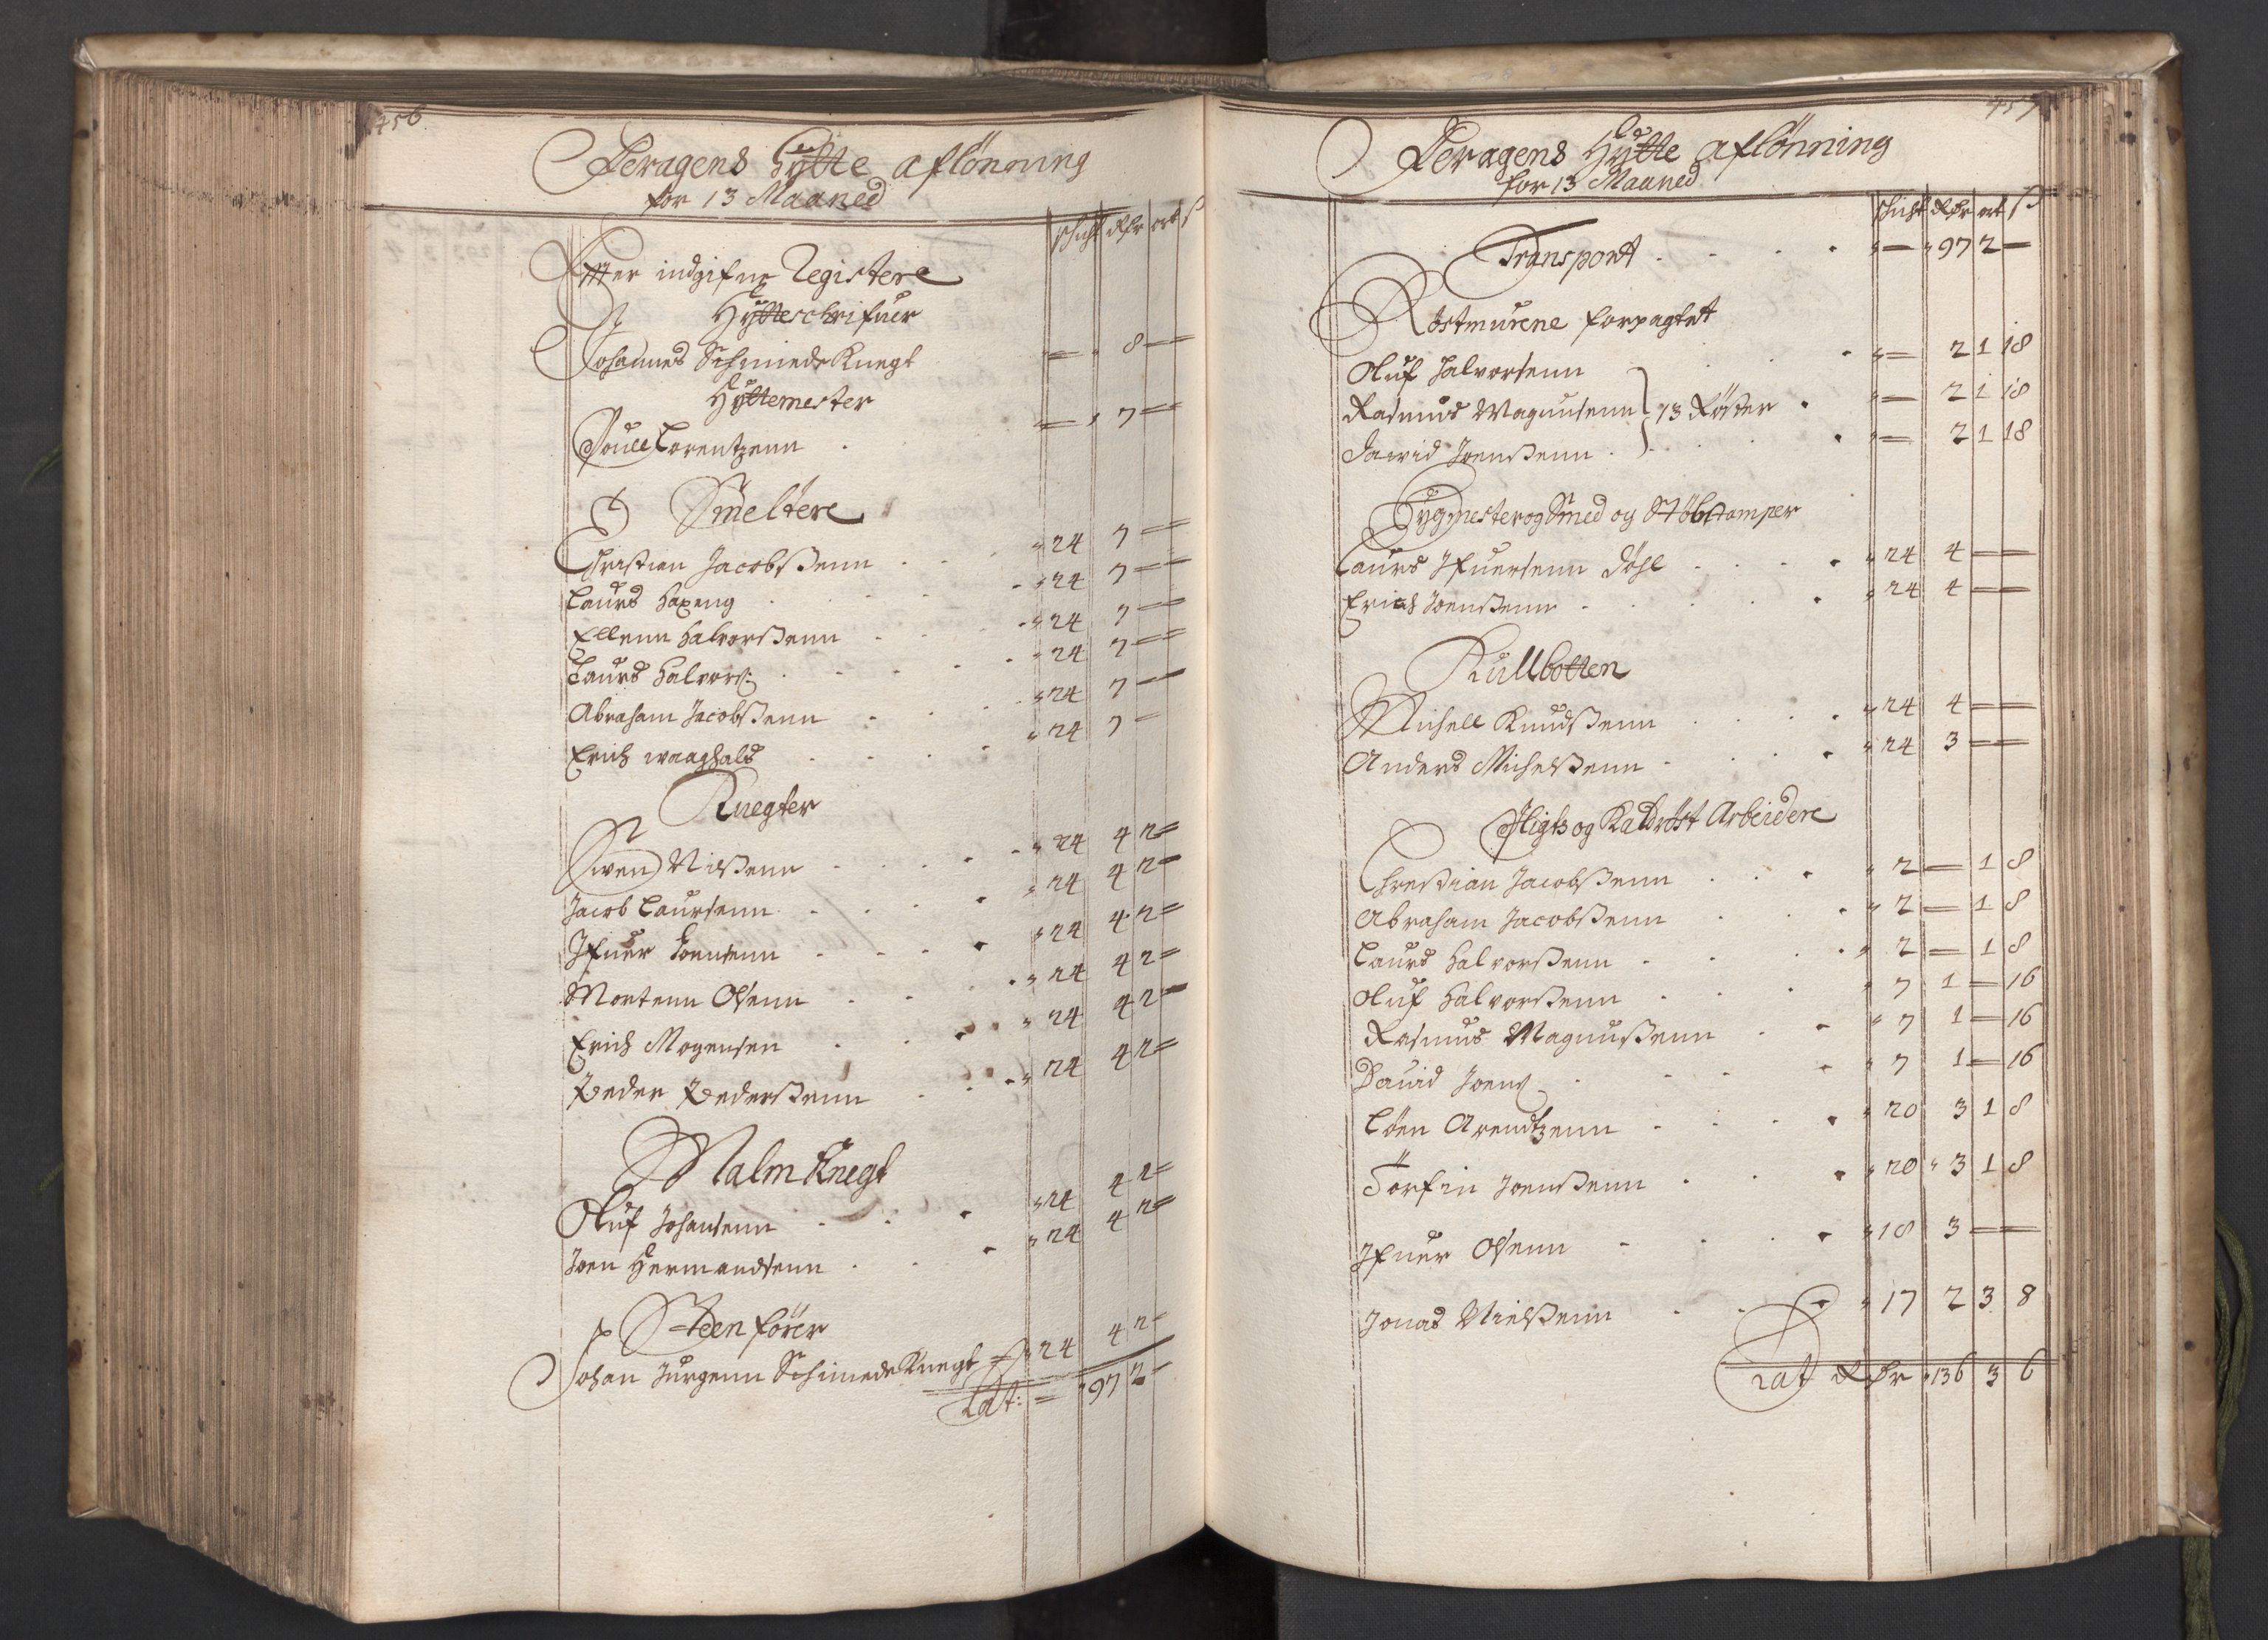 456
Deragens Hytte aflönning
for 13 Maaned
schicht Rdr ort ß
Effter indgifne Registere
Hytteschrifuer
Johannes Schmiedeknegt — 8 —
Hyttemester
Poull Lorentzenn — 7 —
Smeltere
Christian Jacobßenn 24 7 —
Laurs Haxeng 24 7 —
Ellenn Halvorßenn 24 7 —
Laurs Halvorß: 24 7 —
Abraham Jacobßenn 24 7 —
Erich waaghals 24 7 —
Knegter
Swen Nilßenn 24 4 2 —
Jacob Laursenn 24 4 2 —
Ifuer Joensenn 24 4 2 —
Mortenn Olsenn 24 4 2 —
Erich Mogensen 24 4 2 —
Peder Pederßenn 24 4 2 —
Malm Knegt
Oluf Johansenn 24 4 2 —
Joen Hermandsenn 24 4 2 —
Steen förer
Johan Jurgenn Schmiedeknegt 24 4 2 —
Lat: 97 2 —
457
Deragens Hytte aflönning
for 13 Maaned
schicht Rdr ort ß
Transport — 97 2 —
Röstmurene forpagtet
Oluf Halvorsenn — 2 1 18
Rasmus Magnusenn } 13 Röster — 2 1 18
Dawid Joenßenn — 2 1 18
Tygmester og Smed og Stöbstamper
Laurs Ifuersenn Döhl 24 4 —
Erich Joenßenn 24 4 —
Kullbotten
Michell Knudßenn 24 4 —
Anders Michelßenn 24 3 —
Sligts og Kaldröst Arbeidere
Christian Jacobßenn 2 — 1 8
Abraham Jacobßenn 2 — 1 8
Laurs Halvorßenn 2 — 1 8
Oluf Halvorßenn 7 1 — 16
Rasmus Magnußenn 7 1 — 16
David Joenß 7 1 — 16
Cöen Arendtzenn 20 3 1 8
Torfin Joenßenn 20 3 1 8
Ifuer Olsenn 18 3 —
Jonas Nielßenn 17 2 3 8
Lat Rdr 136 3 6